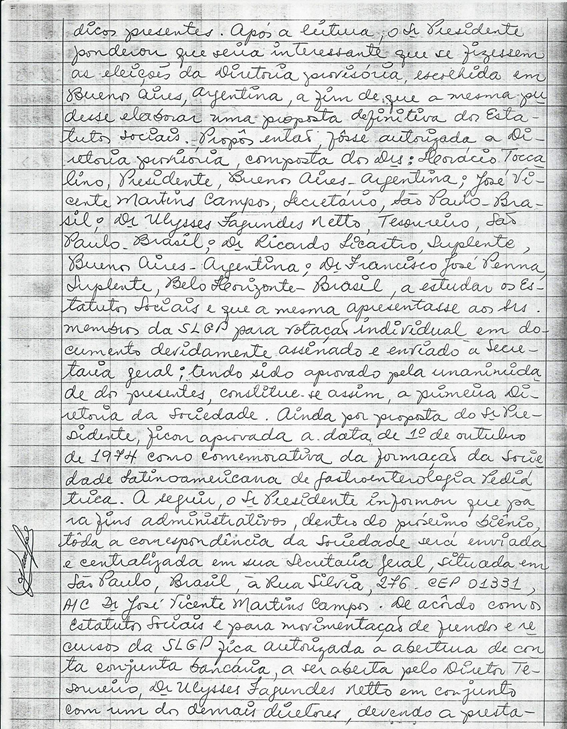 dicos presentes. Após a leitura, o Sr Presidente
ponderou que seria interessante que se fizessem
as eleições da Diretoria provisória, escolhida em
Buenos Aires, Argentina, a fim de que a mesma pu
desse elaborar uma proposta definitiva dos Esta-
tutos Sociais. Propôs então, fôsse autorizada a Di-
retoria provisória, composta dos Drs: Horácio Tocca
lino, Presidente, Buenos Aires-Argentina; José Vi-
cente Martins Campos, Secretário, São Paulo-Bra-
sil; Dr Ulysses Fagundes Netto, Tesoureiro, São
Paulo-Brasil; Dr Ricardo Licastro, Suplente,
Buenos Aires-Argentina; Dr Francisco José Penna,
Suplente, Belo Horizonte-Brasil, a estudar os Es-
tatutos Sociais e que a mesma apresentasse aos srs.
membros da SLGP para votação individual em do-
cumento devidamente assinado e enviado à Secre-
taria geral; tendo sido aprovado pela unanimida
de dos presentes, constitue-se assim, a primeira Di-
retoria da Sociedade. Ainda por proposta do Sr Pre-
sidente, ficou aprovada a data de 1º de outubro
de 1974 como comemorativa da formação da Socie
dade Latinoamericana de Gastroenterologia Pediá
trica. A seguir, o Sr Presidente informou que pa
ra fins administrativos, dentro do próximo biênio,
tôda a correspondência da Sociedade será enviada
e centralizada em sua Secretaria Geral, situada em
São Paulo, Brasil, à Rua Silvia, 276. CEP 01331,
A/C Dr José Vicente Martins Campos. De acôrdo com os
Estatutos Sociais e para movimentação de fundos e re
cursos da SLGP fica autorizada a abertura de con
ta conjunta bancária, a ser aberta pelo Diretor Te-
soureiro, Dr Ulysses Fagundes Netto em conjunto
com um dos demais diretores, devendo a presta-